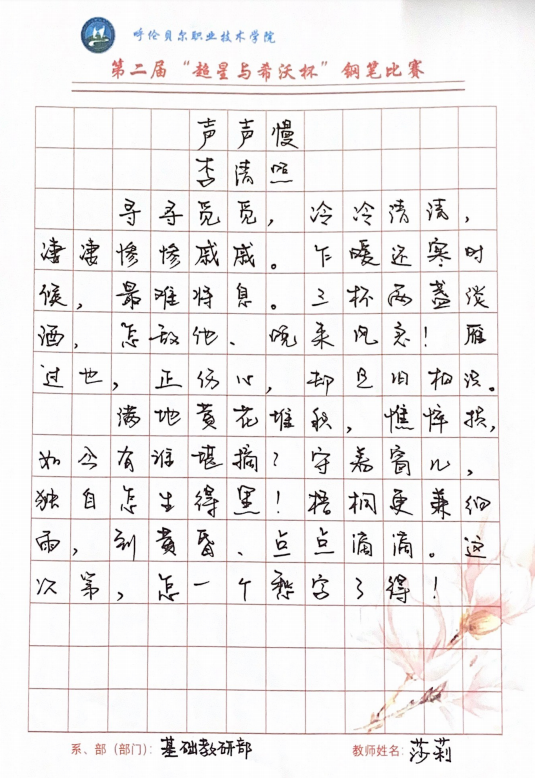 呼伦贝尔职业技术学院
第二届“超星与希沃杯”钢笔比赛
声声慢
李清照
寻寻觅觅，冷冷清清，
凄凄惨惨戚戚。乍暖还寒时
候，最难将息。三杯两盏淡
酒，怎敌他、晚来风急！雁
过也，正伤心，却是旧相识。
满地黄花堆积，憔悴损，
如今有谁堪摘？守着窗儿，
独自怎生得黑！梧桐更兼细
雨，到黄昏、点点滴滴。这
次第，怎一个愁字了得！
系、部（部门）：基础教研部 教师姓名：莎莉